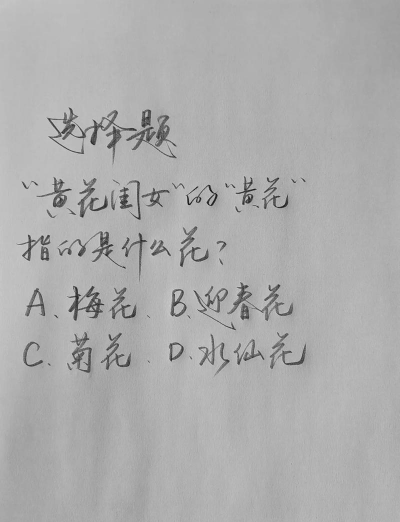 选择题
“黄花闺女”的“黄花”
指的是什么花?
A、梅花、B.迎春花
C、菊花、D.水仙花